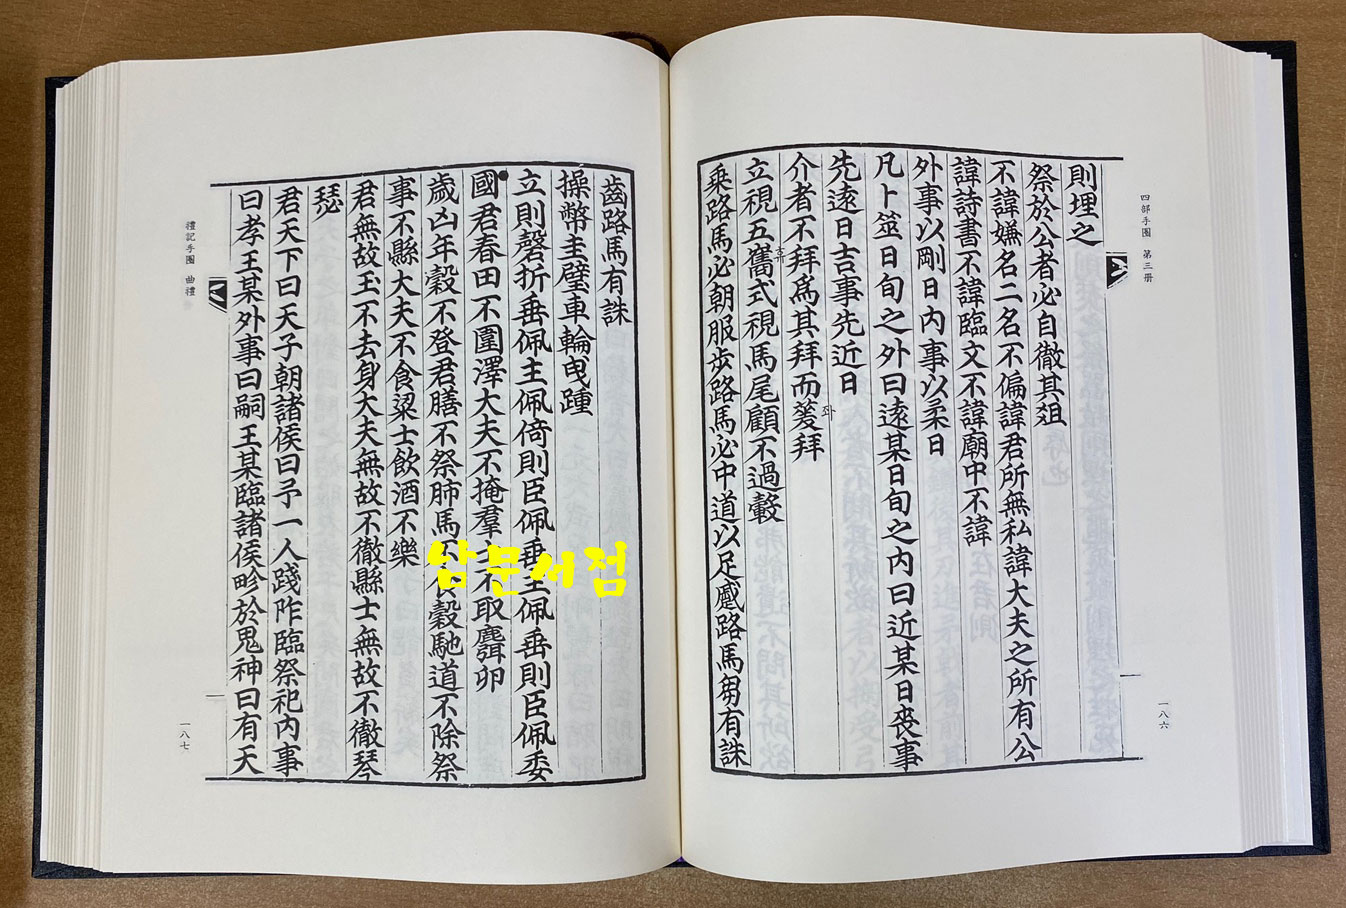 四部手圈 第三冊
則埋之
祭於公者必自徹其俎
不諱嫌名二名不偏諱君所無私諱大夫之所有公
諱詩書不諱臨文不諱廟中不諱
外事以剛日內事以柔日
凡卜筮日旬之外曰遠某日旬之內曰近某日喪事
先遠日吉事先近日
介者不拜爲其拜而蓌拜
立視五雟式視馬尾顧不過轂
乘路馬必朝服步路馬必中道以足蹙路馬芻有誅
一八六
齒路馬有誅
操幣圭璧車輪曳踵
立則磬折垂佩主佩倚則臣佩垂主佩垂則臣佩委
國君春田不圍澤大夫不掩羣士不取麛卵
歲凶年穀不登君膳不祭肺馬不食穀馳道不除祭
事不縣大夫不食粱士飮酒不樂
君無故玉不去身大夫無故不徹縣士無故不徹琴
瑟
君天下曰天子朝諸侯曰予一人踐阼臨祭祀內事
曰孝王某外事曰嗣王某臨諸侯畛於鬼神曰有天
禮記手圈 曲禮
一八七
남문서점